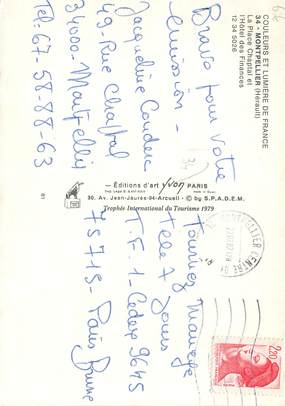 COULEURS ET LUMIERE DE FRANCE
34 - MONTPELLIER (Hérault)
La Place Chaptal et
l'Hôtel des Finances
12 34 5026
Bravo pour votre
émission -
Jacqueline Couderc
49 - Rue Chaptal
34000 - Montpellier
Tel: 67-58-88-63
34
- Éditions d'art yvon PARIS
30, Av. Jean-Jaurès-94-Arcueil - © by S.P.A.D.E.M.
Trophée International du Tourisme 1979
Tournez manège
Télé 7 jours
T.F.1 - Cedex 9645
75715 - Paris Brune
MONTPELLIER CENTRE
2,20